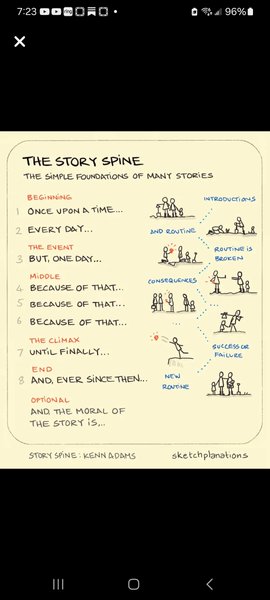 7:23
96%
THE STORY SPINE
THE SIMPLE FOUNDATIONS OF MANY STORIES
BEGINNING
INTRODUCTIONS
1 ONCE UPON A TIME...
2 EVERY DAY...
AND ROUTINE
THE EVENT
ROUTINE IS
BROKEN
3 BUT, ONE DAY...
MIDDLE
CONSEQUENCES
4 BECAUSE OF THAT...
5 BECAUSE OF THAT...
6 BECAUSE OF THAT...
...
THE CLIMAX
7 UNTIL FINALLY...
SUCCESS OR
FAILURE
END
8 AND, EVER SINCE THEN...
NEW
ROUTINE
OPTIONAL
AND THE MORAL OF
THE STORY IS...
STORY SPINE: KENN ADAMS
sketchplanations